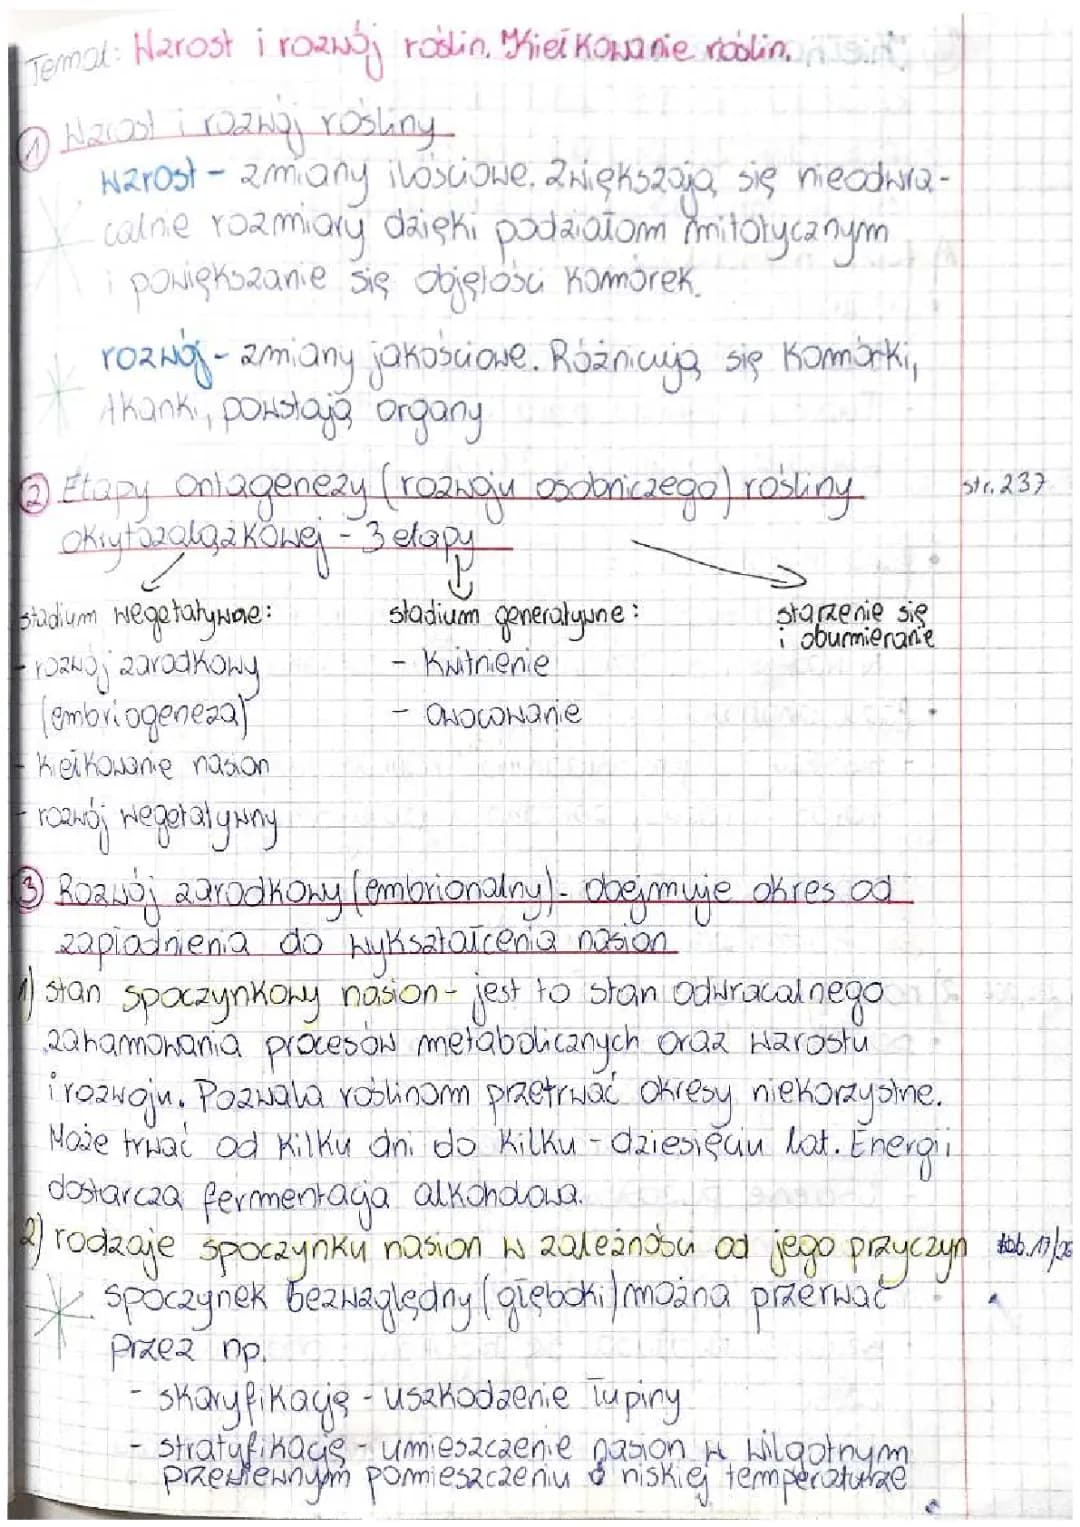 Temat: Wzrost i rozwój roślin. Kiełkowanie roślin.
① Wzrost i rozwój rośliny
wzrost - zmiany ilościowe. Zwiększają się nieodwra-
calnie rozmiary dzięki podziałom mitotycznym
i powiększanie się objętości komórek.
rozwój - zmiany jakościowe. Różnicują się komórki,
tkanki, powstają organy
② Etapy ontagenezy (rozwoju osobniczego) rośliny str. 237
okrytozalążkowej - 3 etapy
stadium wegetatywne: stadium generatywne: starzenie się
i obumieranie
- rozwój zarodkowy - kwitnienie
(embriogeneza) - owocowanie
- kiełkowanie nasion
- rozwój wegetatywny
③ Rozwój zarodkowy (embrionalny) - obejmuje okres od
zapłodnienia do wykształcenia nasion
1) stan spoczynkowy nasion - jest to stan odwracalnego
zahamowania procesów metabolicznych oraz wzrostu
i rozwoju. Pozwala roślinom przetrwać okresy niekorzystne.
Może trwać od kilku dni do kilku - dziesięciu lat. Energii
dostarcza fermentacja alkoholowa.
2) rodzaje spoczynku nasion w zależności od jego przyczyn
spoczynek bezwzględny (głęboki) można przerwać
przez np.
- skaryfikację - uszkodzenie łupiny
- stratyfikację - umieszczenie nasion w wilgotnym
przewiewnym pomieszczeniu o niskiej temperaturze